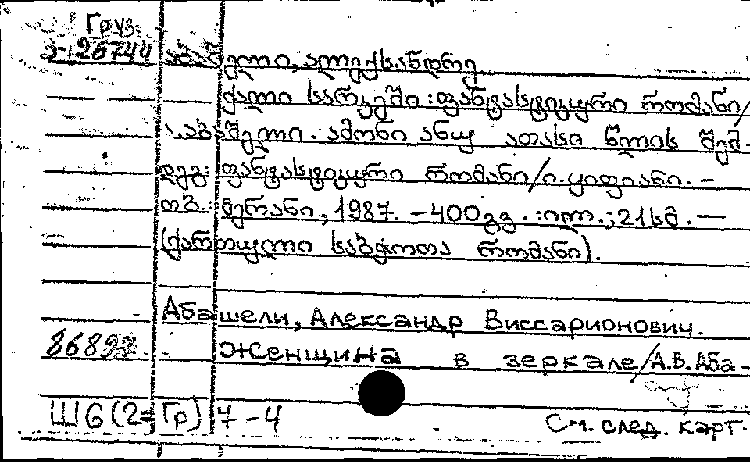 Груз.
Э-26744
აბაშელი, ალექსანდრე
ქალი სარკეში: ფანტასტიკური რომანი/
ა. აბაშელი. ამონი ანუ ათასი წლის შემ-
დეგ: ფანტასტიკური რომანი/ი. ყიფიანი. –
თბ.: მერანი, 1987. – 400 გვ. : ილ.; 21 სმ. —
(ქართული საბჭოთა რომანი).
Абашели, Александр Виссарионович.
86897 Женщина в зеркале/А.В.Аба-
Ш6(2=Гр)7-4
См. след. карт.